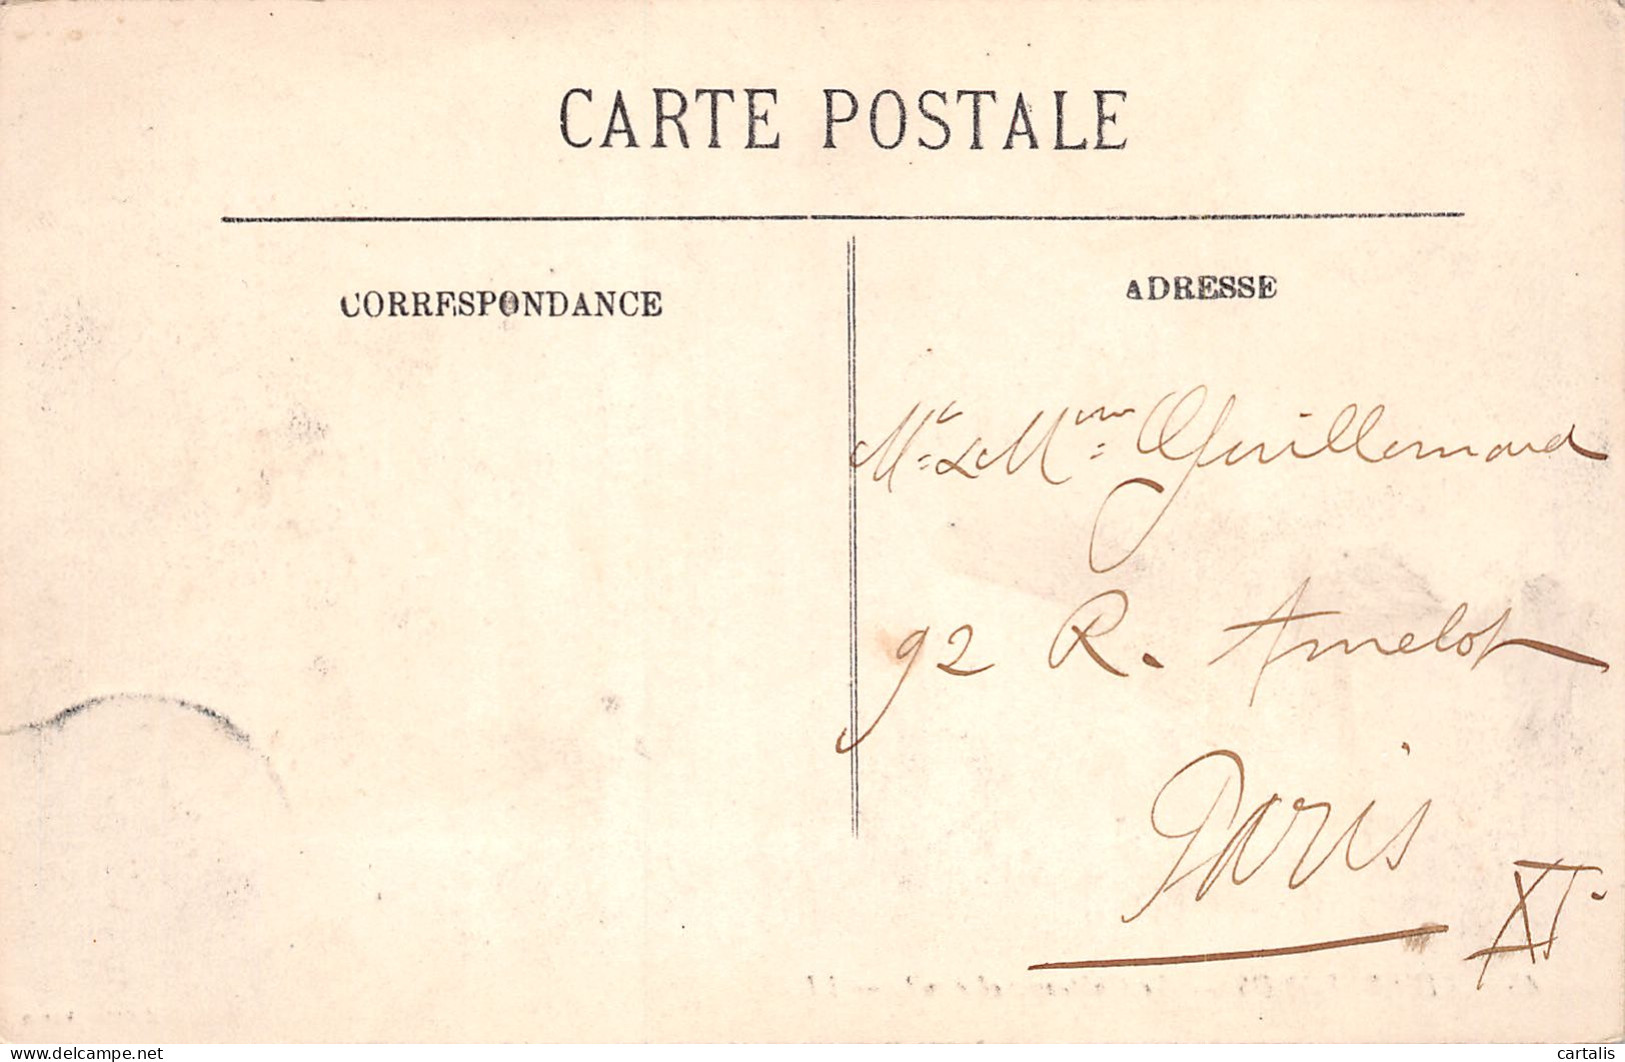 CARTE POSTALE
CORRESPONDANCE
ADRESSE
Mr & Mme Guillemard
92 R. Amelot
Paris
XI
delcampe.net
cartalis